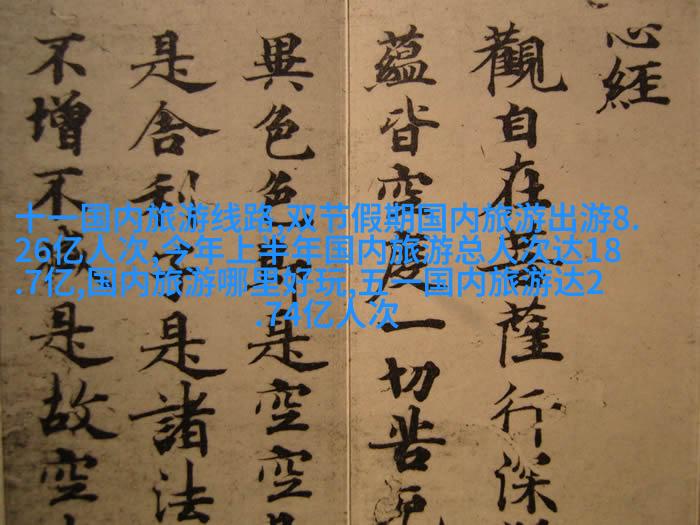 十一国内旅游线路,,双节假期国内旅游出游8.
26亿人次,今年上半年国内旅游总人次达18
.7亿,国内旅游哪里好玩,五一国内旅游达2
.74亿人次
心經
觀自在菩薩行深
蘊皆空度一切苦厄
異色色即是空空
是舍利子是諸法
不增不減是故空